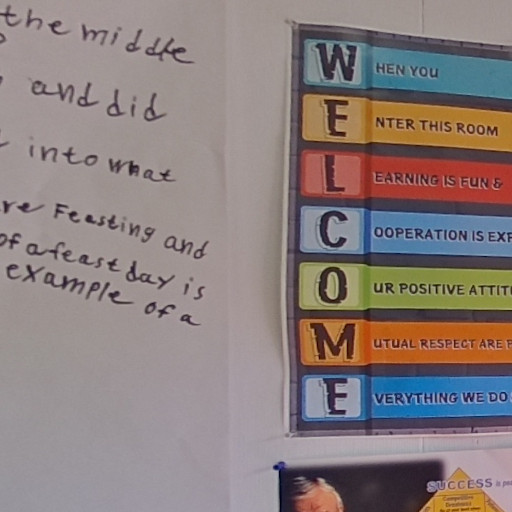 the middle
and did
into what
re Feasting and
of a feast day is
example of a
WHEN YOU
ENTER THIS ROOM
LEARNING IS FUN &
COOPERATION IS EXP
OUR POSITIVE ATTIT
MUTUAL RESPECT ARE P
EVERYTHING WE DO
SUCCESS is
Competitive
Greatness